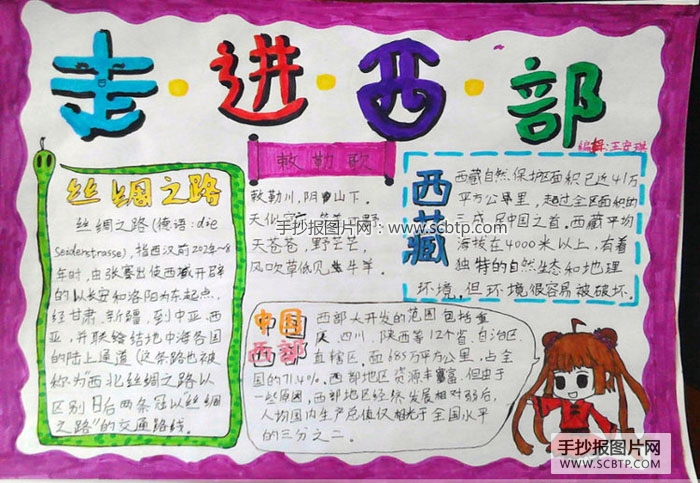 走·进·西·部
编辑:王安琪
丝绸之路
丝绸之路(德语:die
Seidenstrasse),指西汉前202年~8
年时,由张骞出使西域开辟
的以长安和洛阳为东起点,
经甘肃、新疆,到中亚、西
亚,并联络结地中海各国
的陆上通道(这条路也被
称为"西北丝绸之路"以
区别日后两条冠以"丝绸
之路"的交通路线。
敕勒歌
敕勒川,阴山下。
天似
天苍苍,野茫茫,
风吹草低见牛羊。
手抄报图片网:www.scbtp.com
西藏
西藏自然保护区面积已近41万
平方公里,超过全区面积的
三成,居中国之首。西藏平均
海拔在4000米以上,有着
独特的自然生态和地理
环境。但环境很容易被破坏.
中国
西部
西部大开发的范围包括重
庆、四川、陕西等12个省、自治区、
直辖区,面685万平方公里,占全
国的71.4%。西部地区资源丰富,但由于
一些原因,西部地区经济发展相对弱后,
人均国内生产总值仅相当于全国水平
的三分之二。
手抄报图片网
WWW.SCBTP.COM